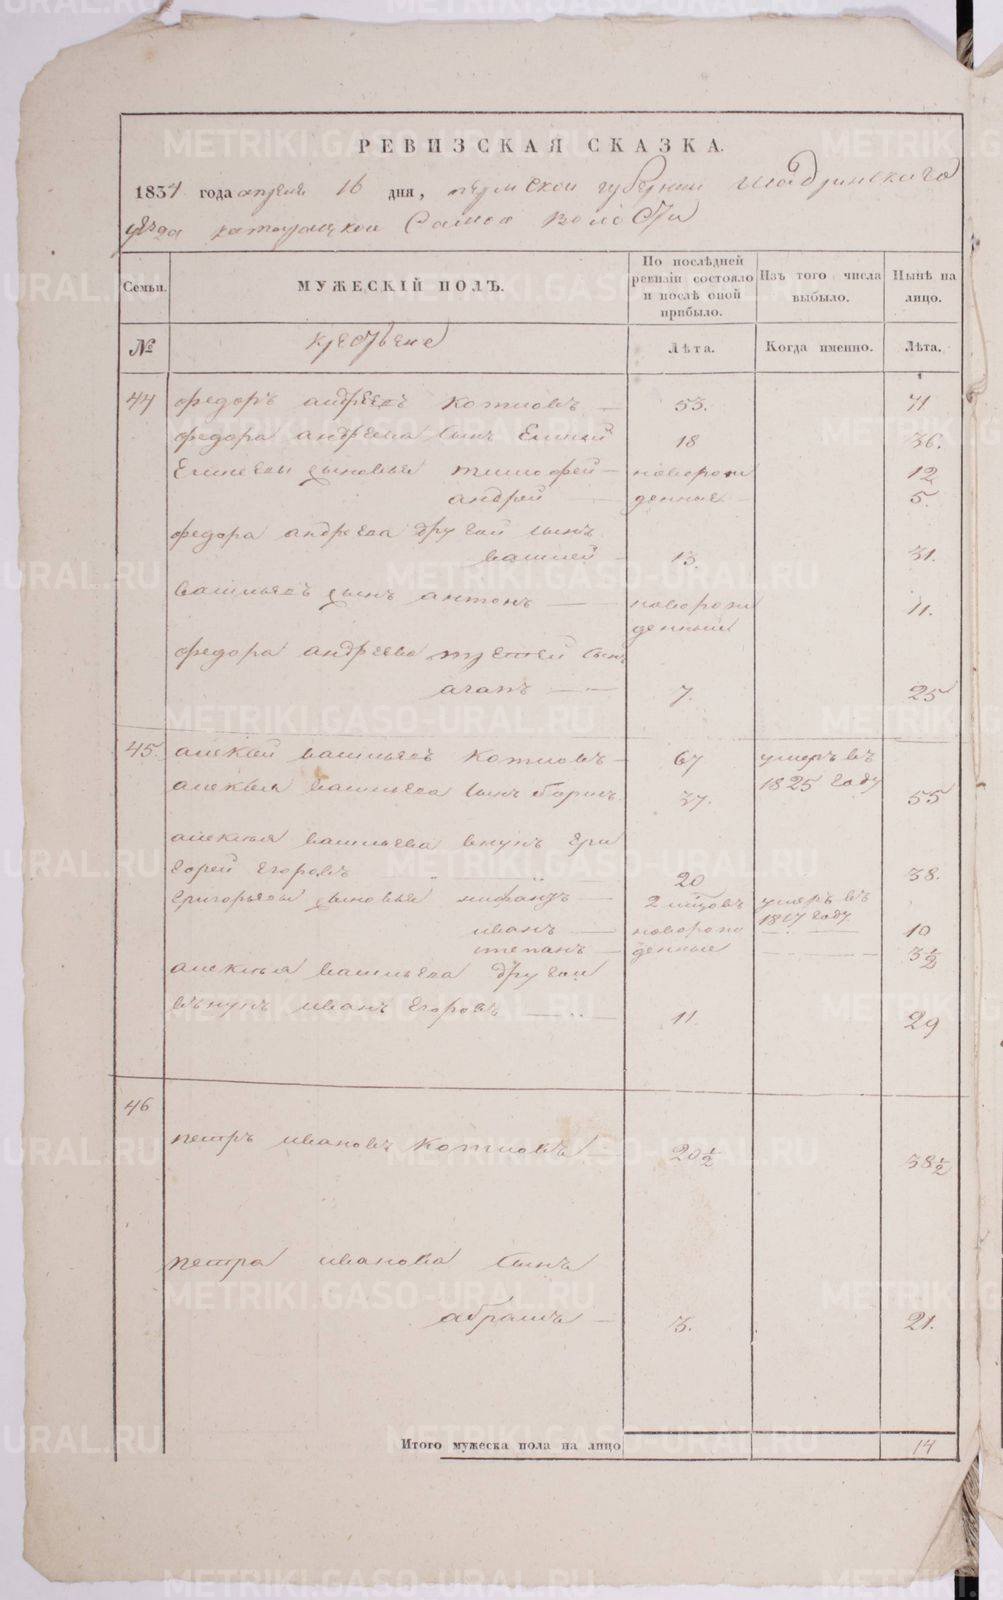 РЕВИЗСКАЯ СКАЗКА.
1834 года апреля 16 дня, пермской губернии шадринскаго
уезда самой волости
Семьи. МУЖЕСКІЙ ПОЛЪ. По послѣдней ревизіи состояло и послѣ оной прибыло. Изъ того числа выбыло. Нынѣ на лицо.
№ крестьяне Лѣта. Когда именно. Лѣта.
44 федоръ андреевъ котловъ 53. 71
федора андреева сынъ Елисей 18 36.
Елисеевы сыновья тимофей новорож 12
андрей денные 5.
федора андреева другой сынъ
василей 13. 31.
васильевъ сынъ антонъ новорож 11.
денный
федора андреева третей сынъ
агапъ 7. 25
45. алексей васильевъ котловъ 67 умеръ въ
1825 году
алексея васильева сынъ 37. 55
алексея васильева внукъ гри
горей егоровъ 20 38.
григорьевы сыновья 2 умеръ въ
1817 году
иванъ новорож 10
степанъ денные 3 1/2
алексея васильева другой
внукъ иванъ егоровъ 11. 29
46
петръ ивановъ котловъ 20 1/2 38 1/2
петра иванова сынъ
абрамъ 3. 21.
Итого мужеска пола на лицо 14
METRIKI.GASO-URAL.RU